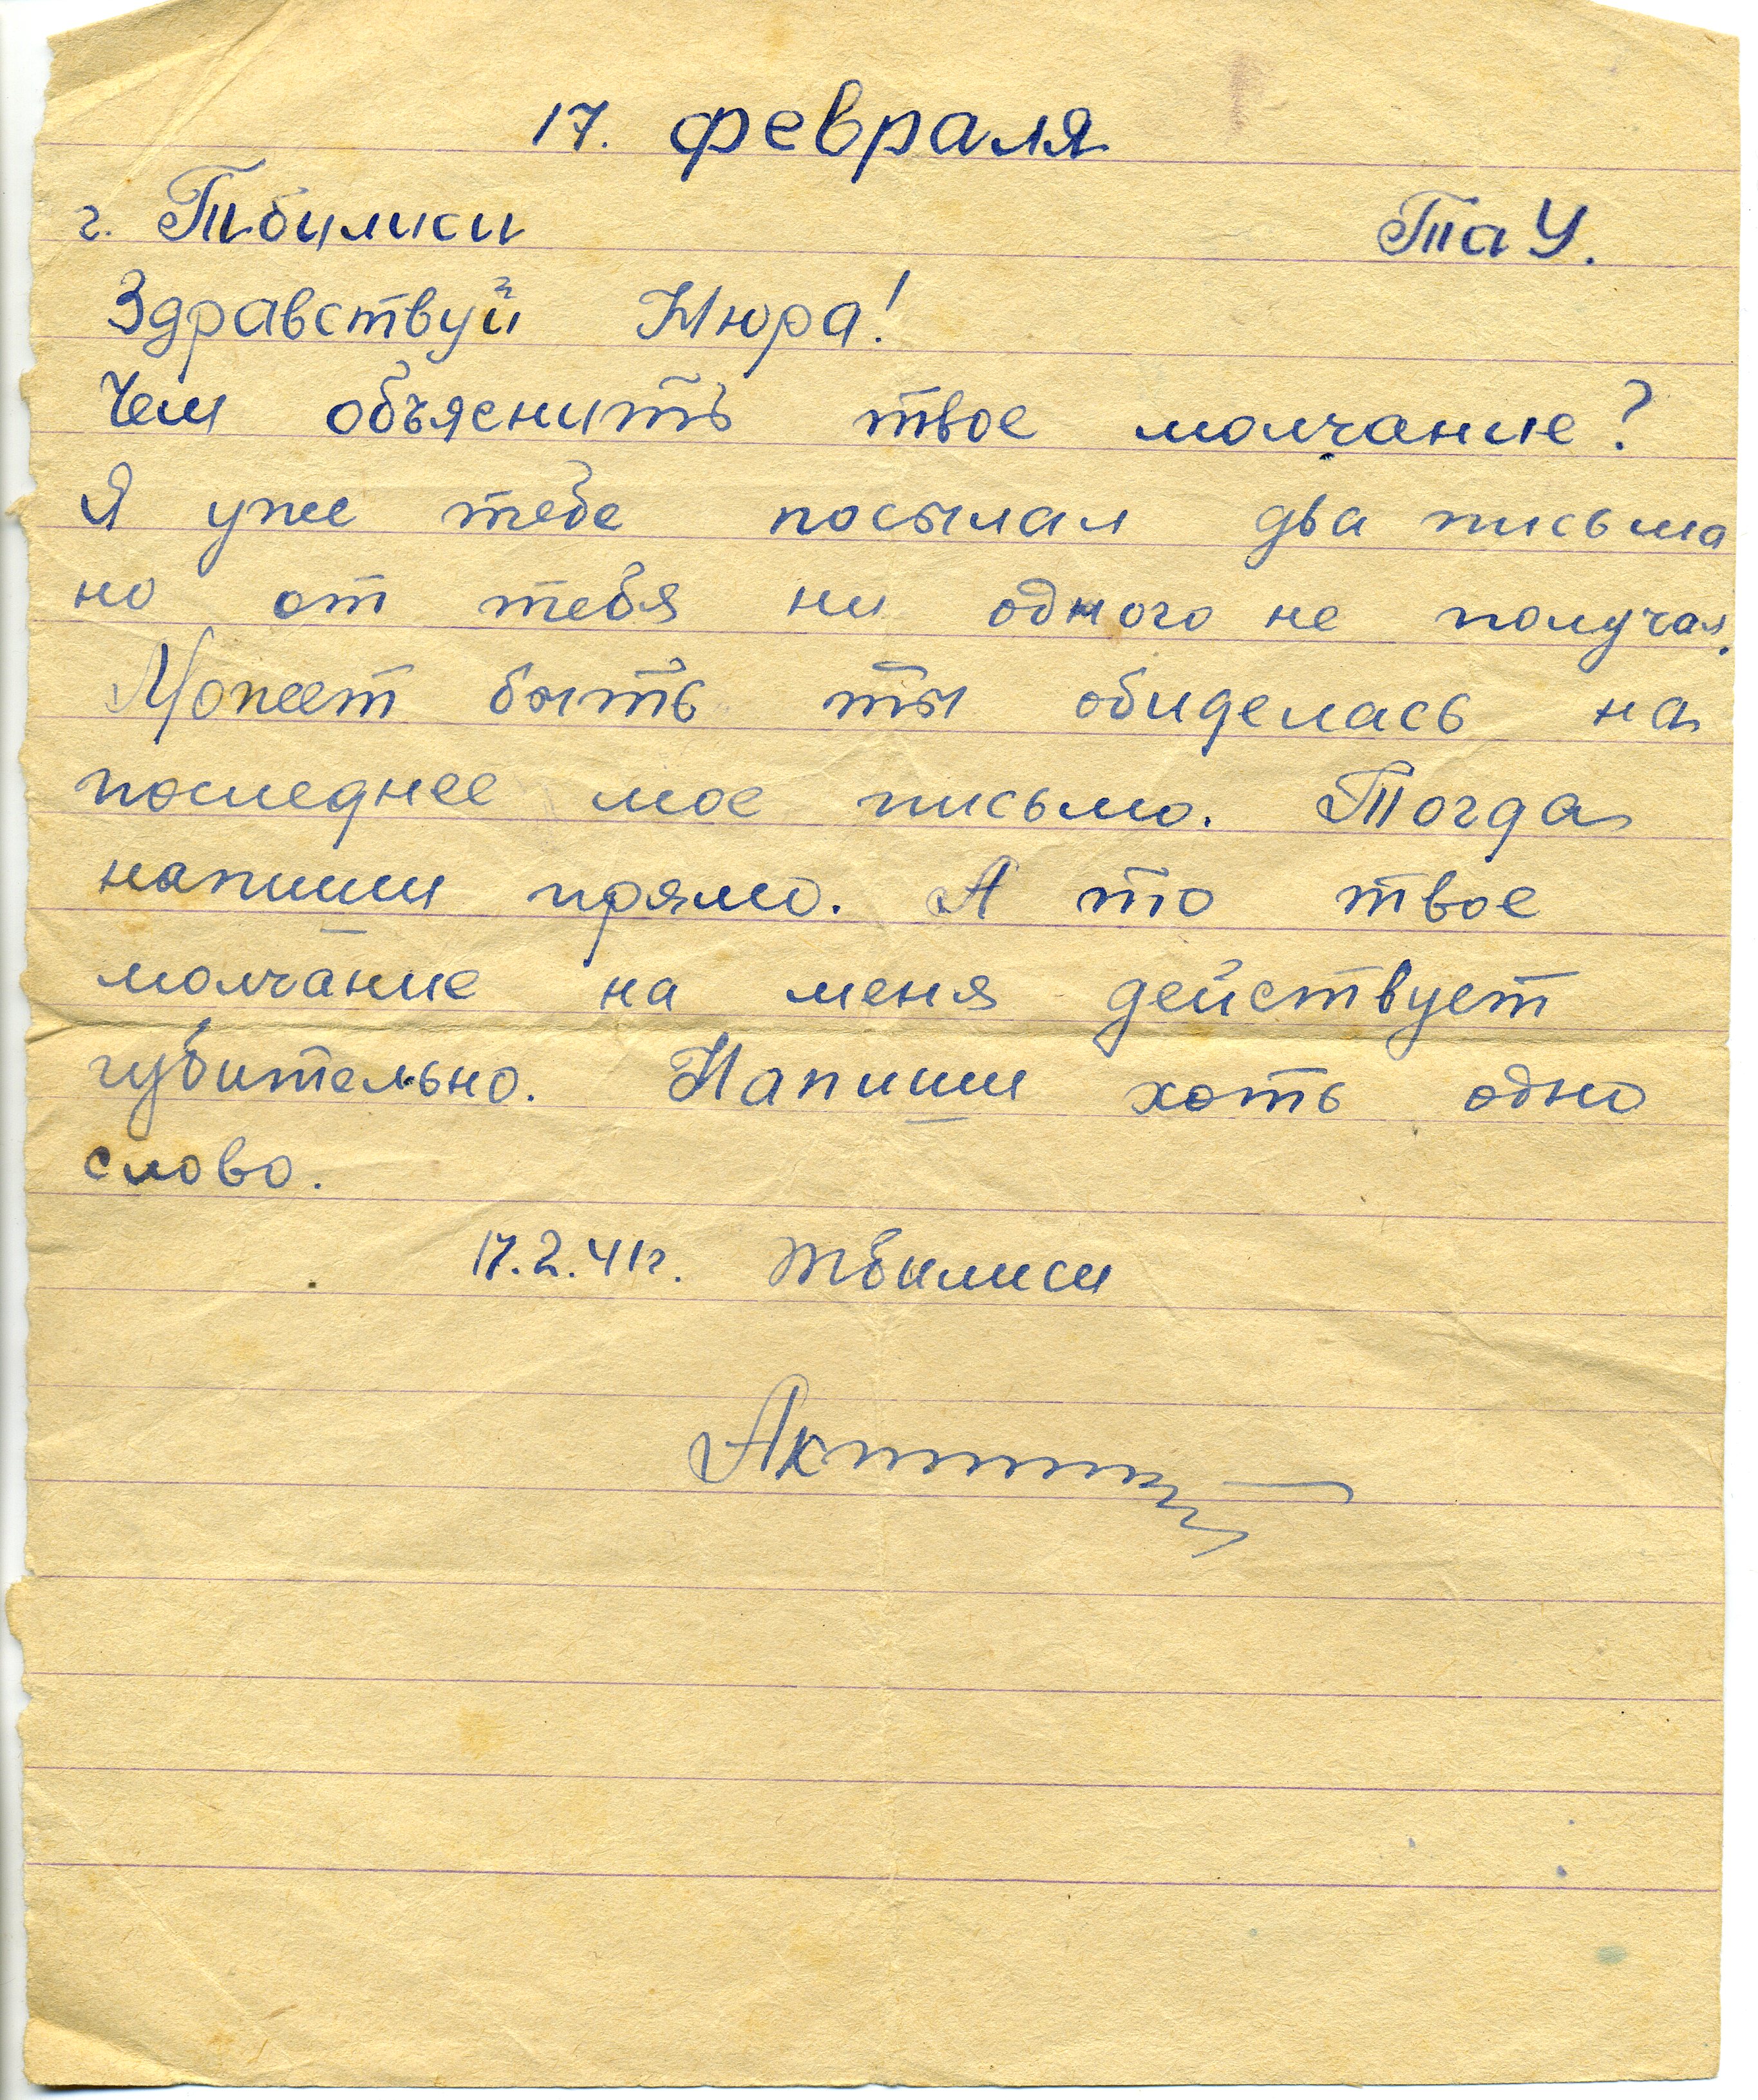 17. февраля
г. Тбилиси ТаУ.
Здравствуй Нюра!
Чем объяснить твое молчание?
Я уже тебе посылал два письма
но от тебя ни одного не получал.
Может быть ты обиделась на
последнее мое письмо. Тогда
напиши прямо. А то твое
молчание на меня действует
губительно. Напиши хоть одно
слово.
17.2.41г. Тбилиси